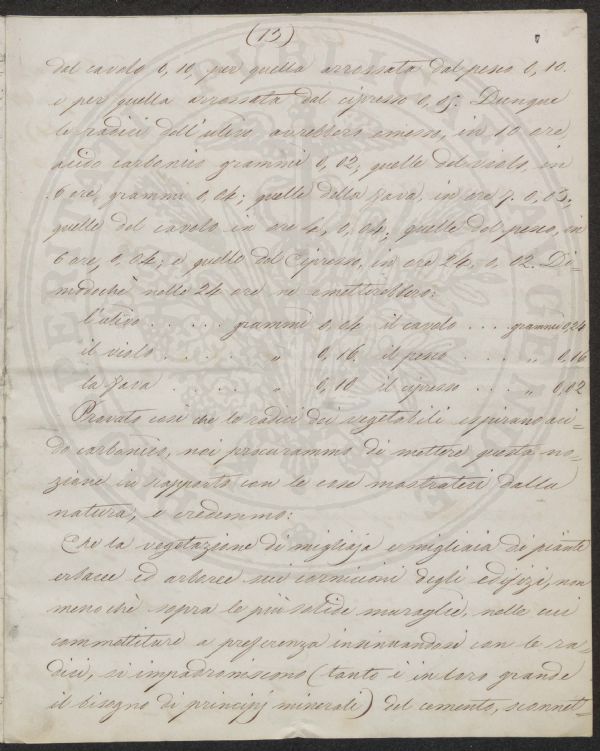 (13)
dal cavolo 0,10 per quella arrossata dal pesco 0,10.
e per quella arrossata dal cipresso 0,05. Dunque
le radici dell'ulivo avrebbero emesso, in 10 ore,
acido carbonico grammi 0,02; quelle del violo, in
6 ore, grammi 0,04; quelle della fava, in ore 7. 0,03;
quelle del cavolo in ore 4, 0,04; quelle del pesco, in
6 ore, 0,04; e quelle del Cipresso, in ore 24. 0,02. Di-
modochè nelle 24 ore ne emetterebbero:
l'ulivo . . . . . grammi 0,04 il cavolo . . . . grammi 0,24
il violo . . . . . " 0,16 il pesco . . . . " 0,16
la fava . . . . . " 0,10 il cipresso . . . " 0,02
Provato così che le radici dei vegetabili espirano aci-
do carbonico, noi procurammo di mettere questa no-
zione in rapporto con le cose mostrateci dalla
natura; e credemmo:
Che la vegetazione di migliaja e migliaia di piante
erbacee ed arboree sui cornicioni degli edifizi, non
meno chè sopra le più solide muraglie, nelle cui
commettiture a preferenza insinuandosi con le ra-
dici, si impadroniscono (tanto è in loro grande
il bisogno di principj minerali) del cemento, sconnet-
PUBLICAE